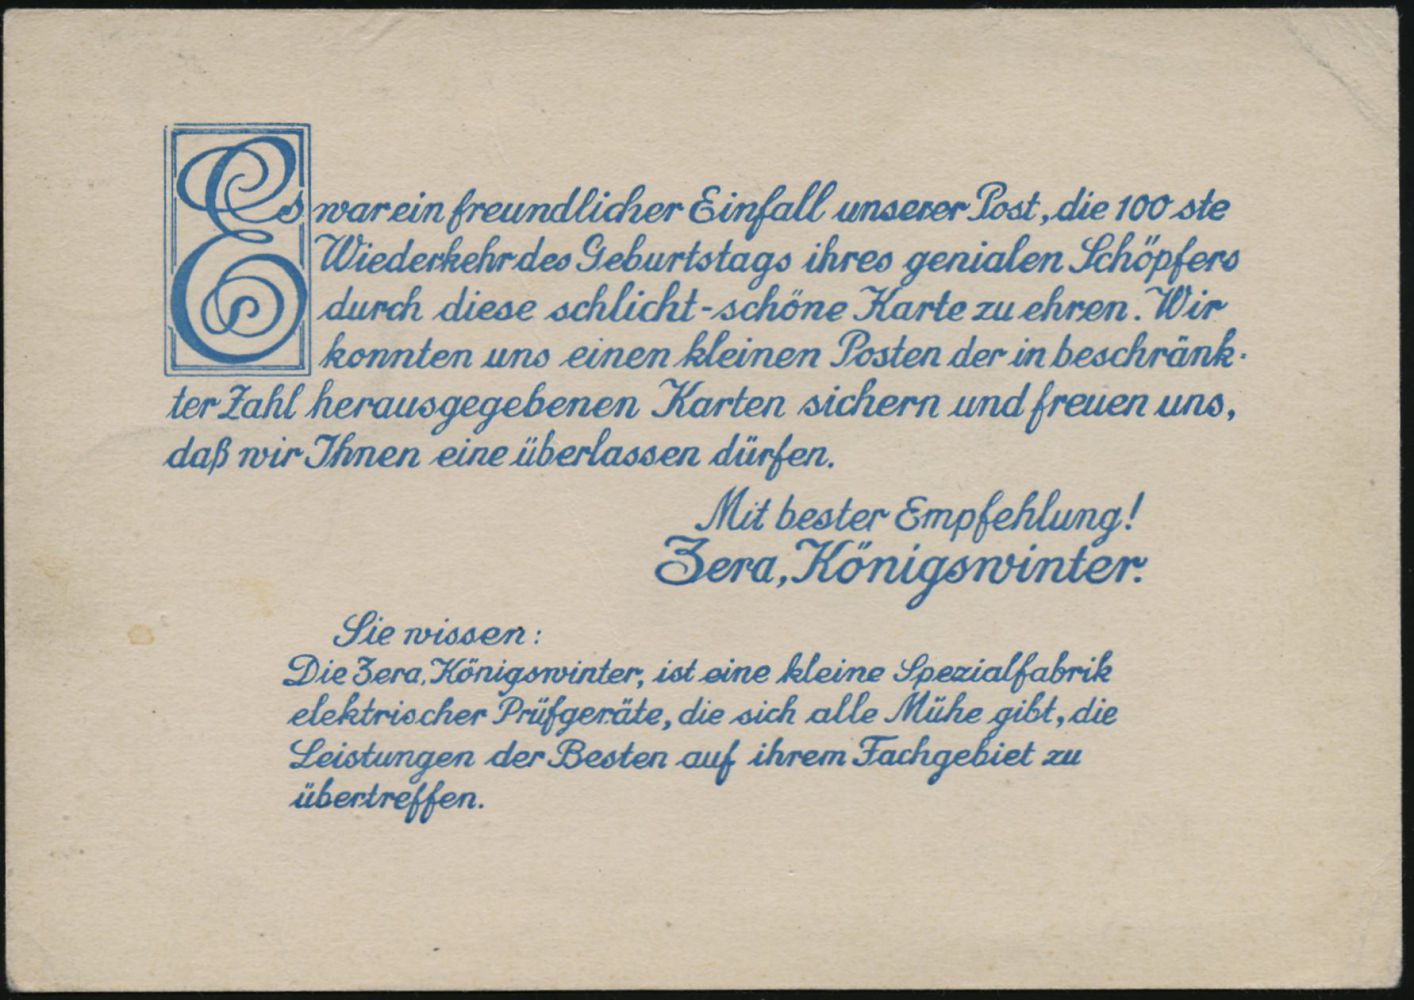 Es war ein freundlicher Einfall unserer Post, die 100 ste
Wiederkehr des Geburtstags ihres genialen Schöpfers
durch diese schlicht-schöne Karte zu ehren. Wir
konnten uns einen kleinen Posten der in beschränk-
ter Zahl herausgegebenen Karten sichern und freuen uns,
daß wir Ihnen eine überlassen dürfen.
Mit bester Empfehlung!
Zera, Königswinter.
Sie wissen:
Die Zera, Königswinter, ist eine kleine Spezialfabrik
elektrischer Prüfgeräte, die sich alle Mühe gibt, die
Leistungen der Besten auf ihrem Fachgebiet zu
übertreffen.